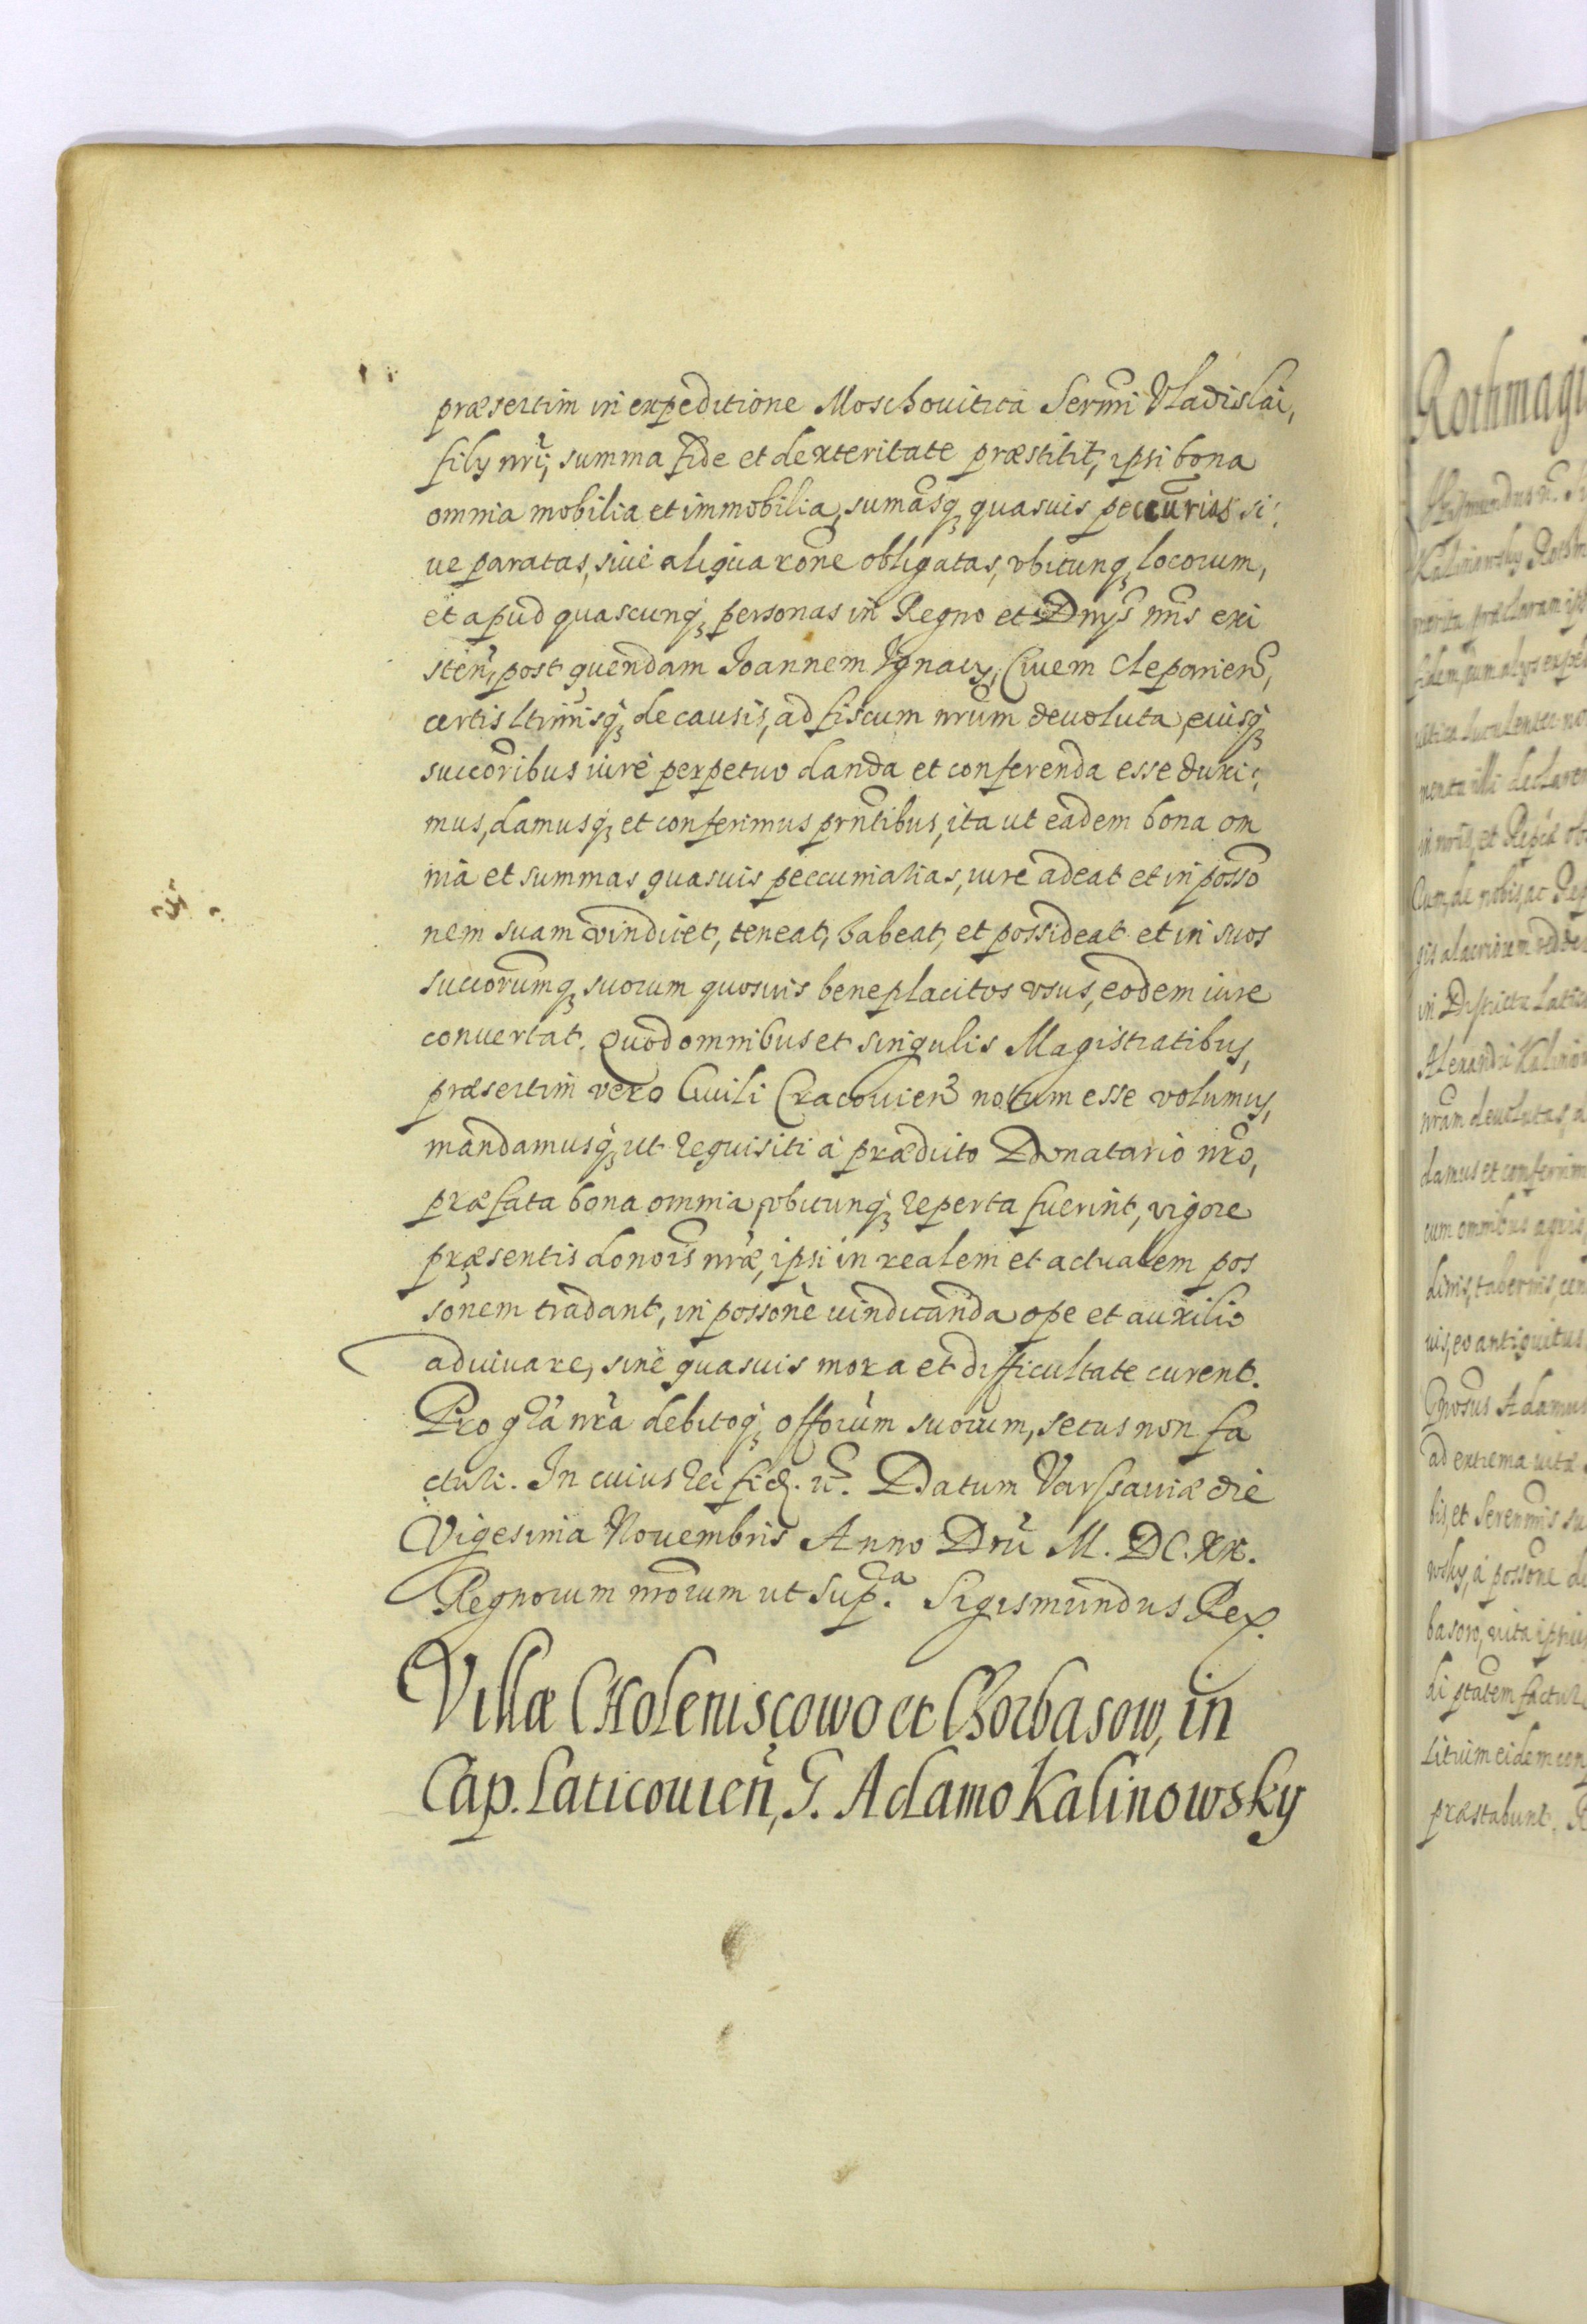 præsertim in expeditione Moschouitica Sermi Vladislai,
filÿ nri, summa fide et dexteritate præstitit, ipsi bona
omnia mobilia et immobilia, sumasq3 quasuis peccurias si:
ue paratas, siue aliqua rone obligatas, vbicunq3 locorum,
et apud quascunq3 personas in Regno et Dnÿs nris exi
sten, post quendam Ioannem Ignacÿ, Ciuem Clepariens,
certis ltimisq3 de causis, ad fiscum nrum deuoluta, eiusq3
succoribus iure perpetuo danda et conferenda esse duxi:
mus, damusq3 et conferimus prntibus, ita ut eadem bona om
nia et summas quasuis peccuniarias, iure adeat et in posso
nem suam vindicet, teneat, habeat, et possideat et in suos
succorumq3 suorum quosuis beneplacitos vsus, eodem iure
conuertat. Quod omnibus et singulis Magistratibus,
præsertim vero Ciuili Cracouien notum esse volumus,
mandamusq3 ut requisiti à prædicto Donatario nro,
præfata bona omnia, vbicunq3 reperta fuerint, vigore
præsentis donois nræ, ipsi in realem et actualem pos
sonem tradant, in possone uindicanda ope et auxilio
adiuuare, sine quasuis mora et difficultate curent.
Pro gra nra debitoq3 offorum suorum, secus non fa
cturi. In cuius rei fid. rc. Datum Varssauiæ die
Vigesima Nouembris Anno Dni M. DC. XX.
Regnorum nrorum ut sup.a Sigismundus Rex.
Villæ CHoleniscowo et CHorbasow, in
Cap. Laticouien, G. Adamo Kalinowsky
Rothmagi
Kalinowsky
fidem, cum alÿs exped
in nris, et Reipcæ ob
Cum, de nobis, ac Rep
in Districtu Latic
Alexandri Kalinow
nram deuolutas, d
damus et conferim
cum omnibus agris
uis, eo antiquitus
Gnosus Adamus
ad extrema uitæ
bis, et Serenmis su
wsky, à possone de
basow, uita ipsius
di ptatem factur
Lituim eidem con
præstabunt. R